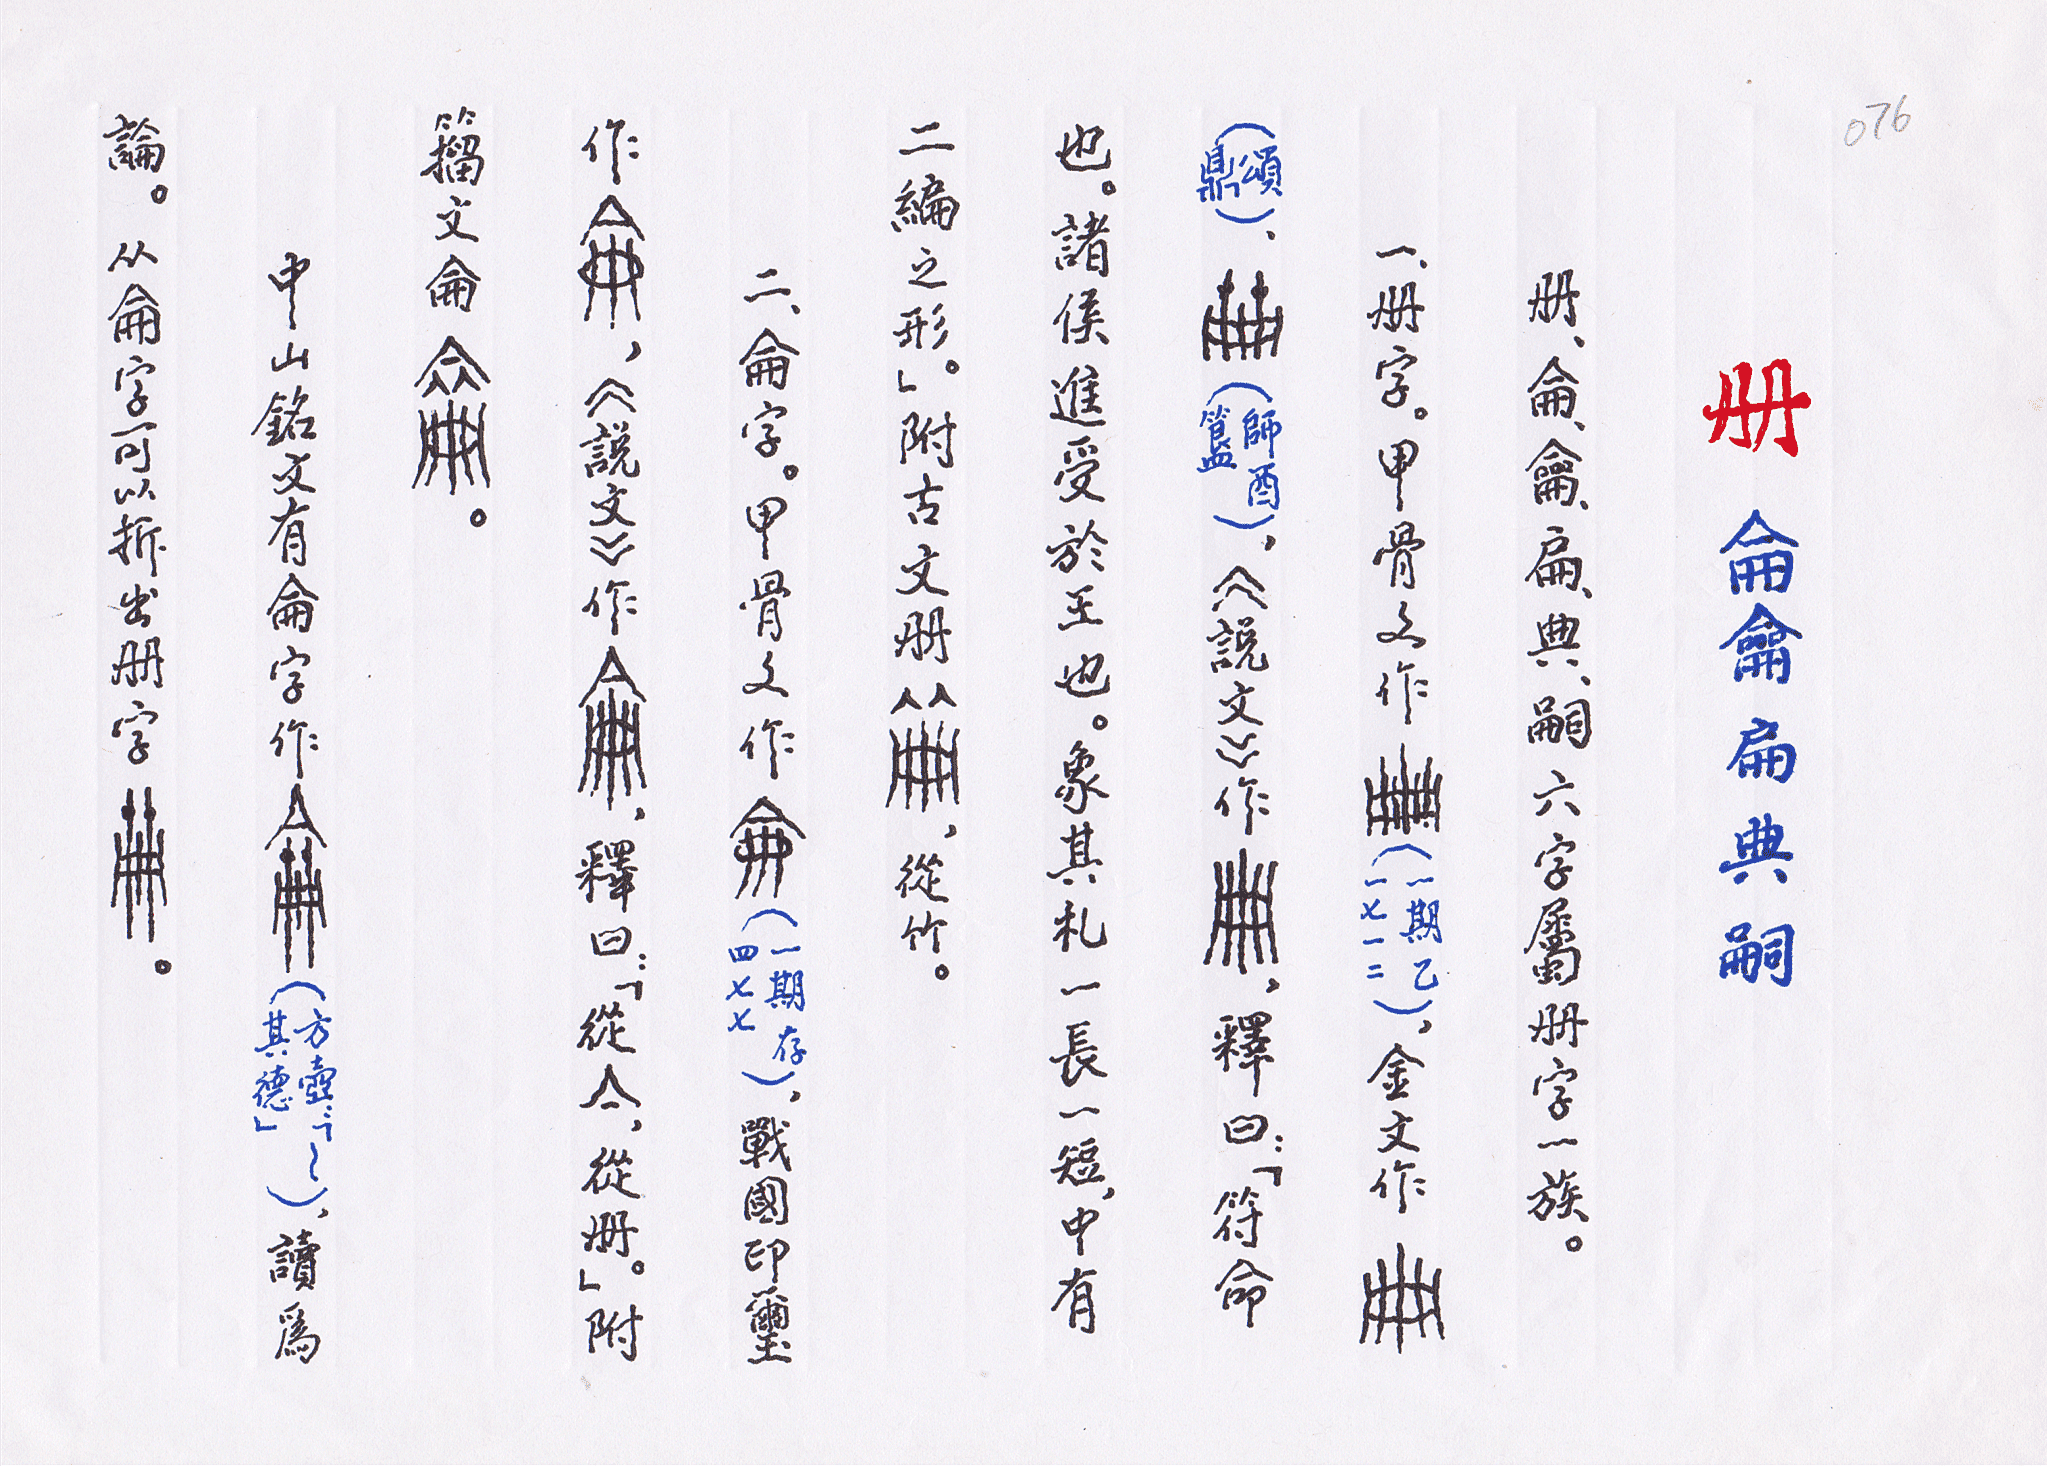 076
册 侖龠扁典嗣
册、侖、龠、扁、典、嗣六字屬册字一族。
一、册字。甲骨文作（一期乙一七一二），金文作
（頌鼎）、（師酉簋），《説文》作，釋曰：「符命
也。諸侯進受於王也。象其札一長一短，中有
二編之形。」附古文册，從竹。
二、侖字。甲骨文作（一期存四七七），戰國印璽
作，《説文》作，釋曰：「從亼，從册。」附
籀文侖。
中山銘文有侖字作（方壺：「～其德」），讀爲
論。从侖字可以拆出册字。